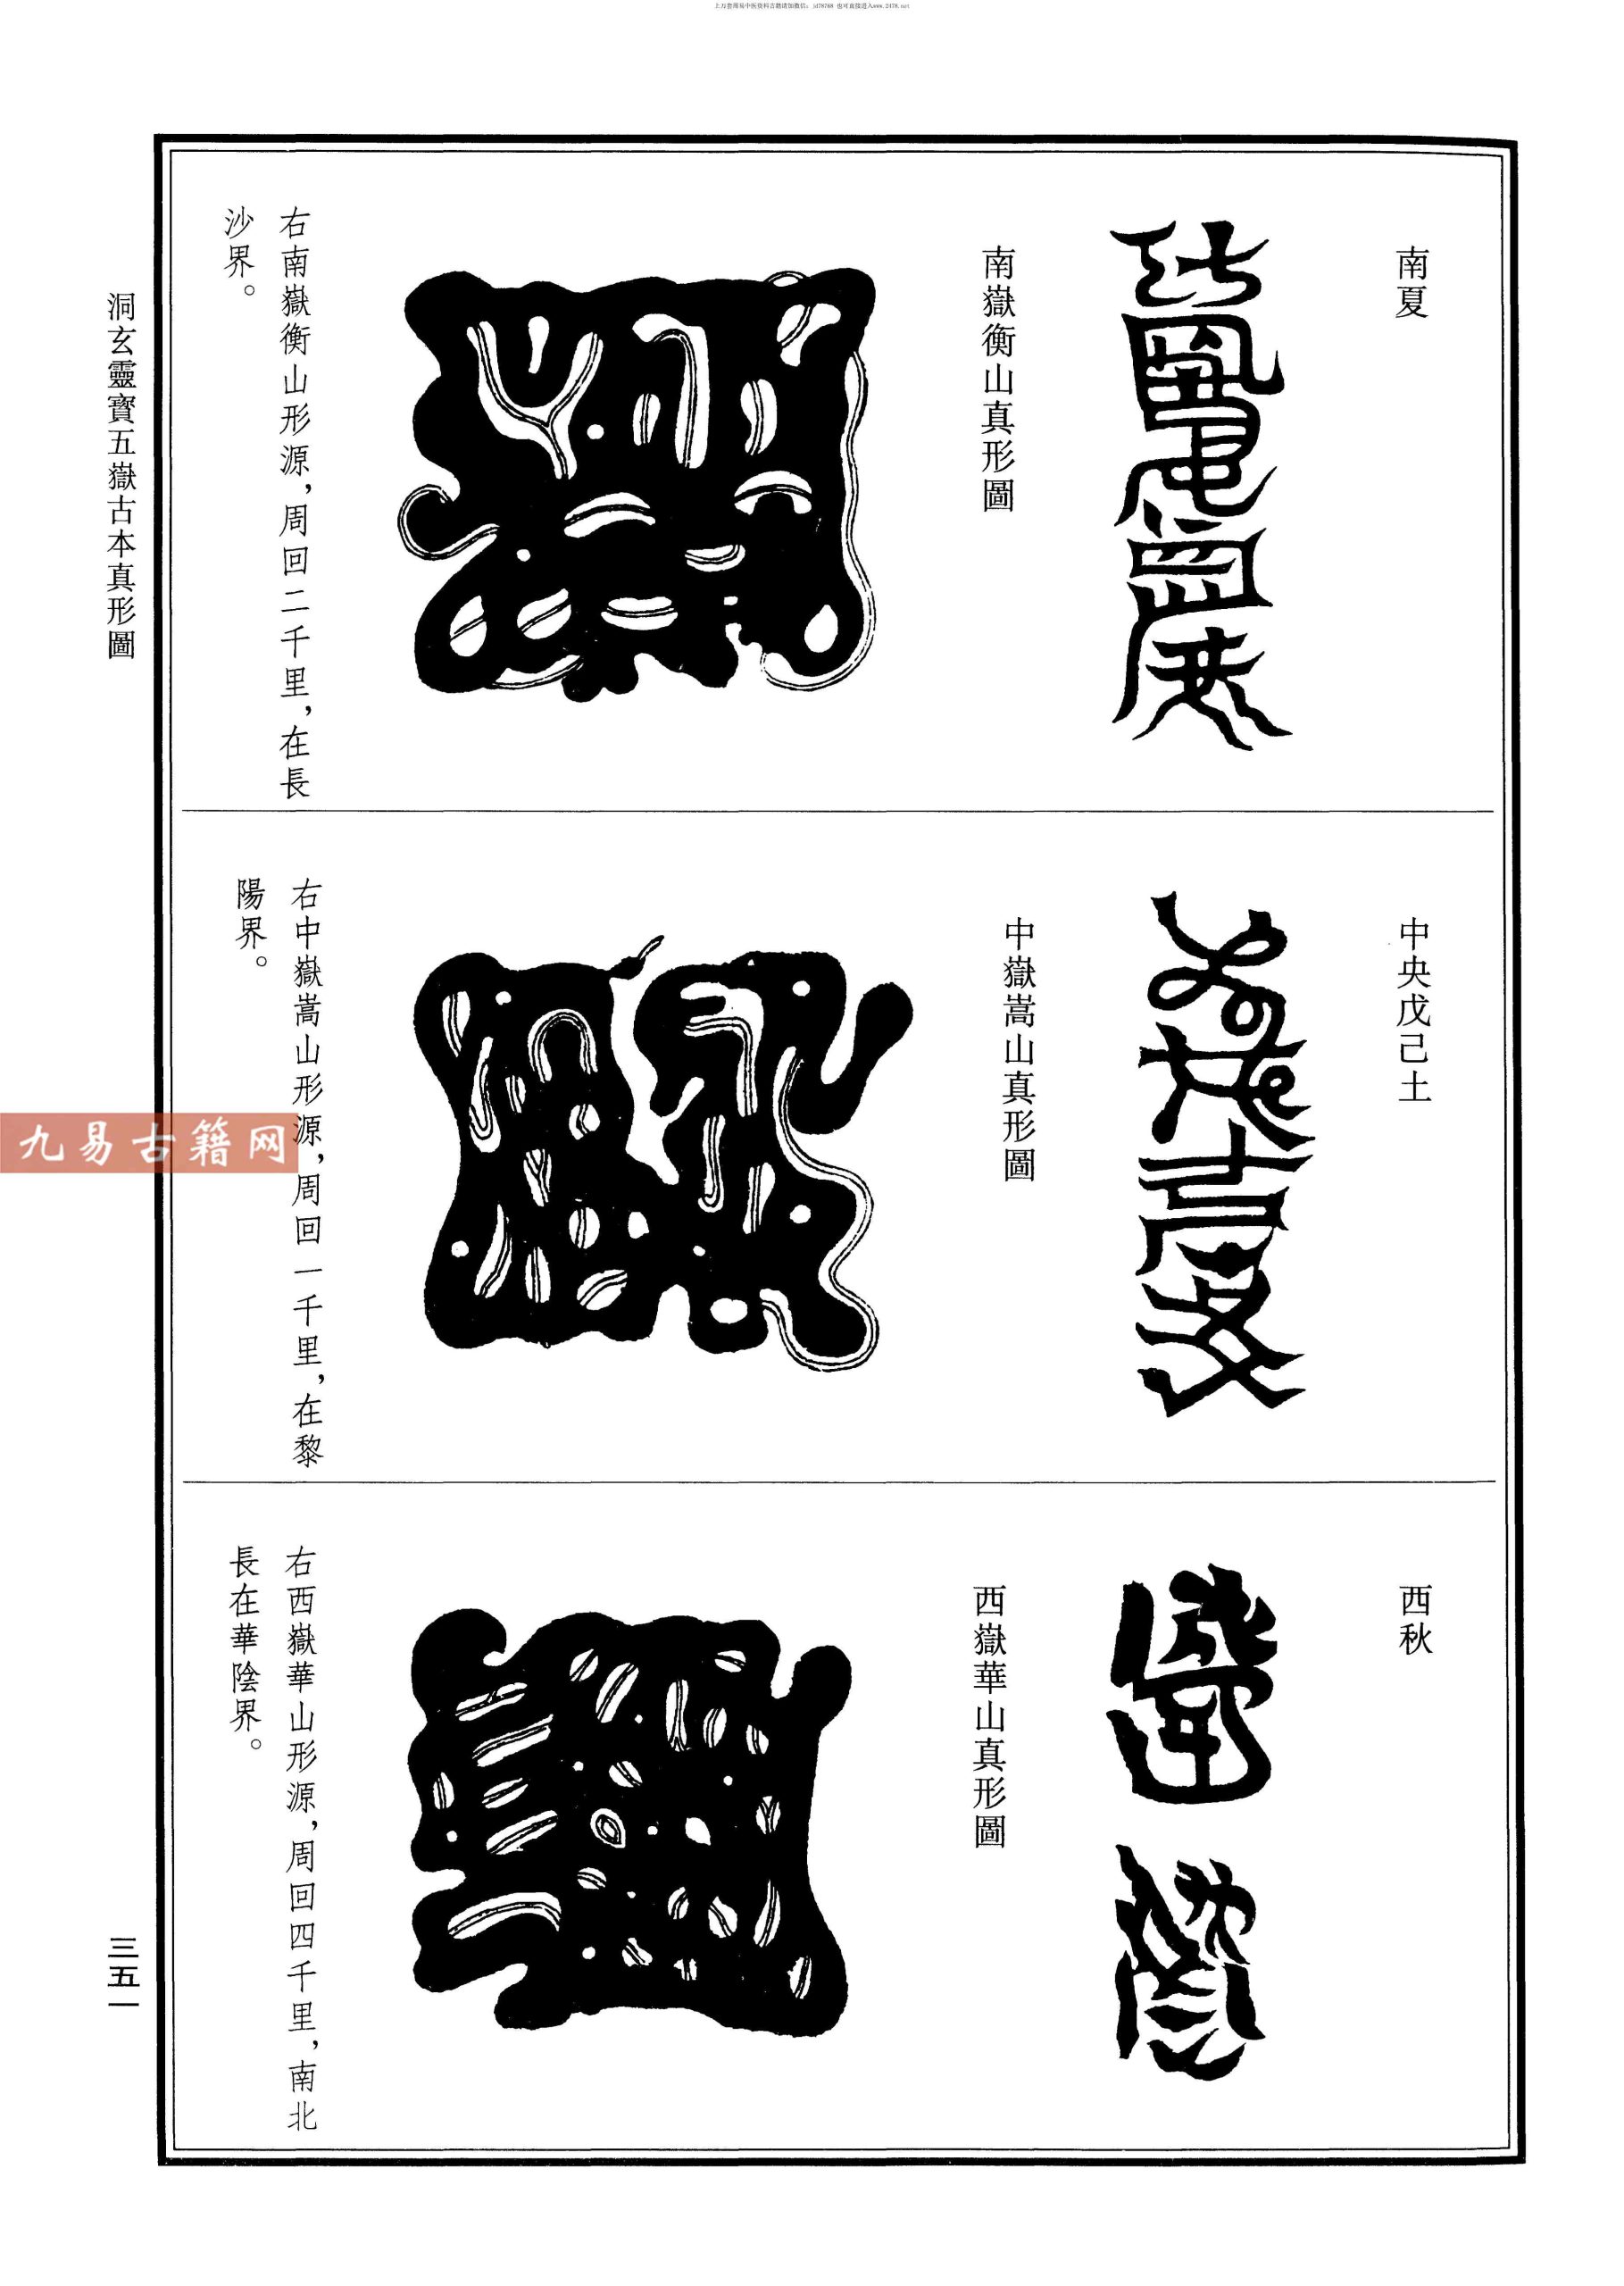 南夏
南嶽衡山真形圖
右南嶽衡山形源，周回二千里，在長
沙界。
中央戊己土
中嶽嵩山真形圖
右中嶽嵩山形源，周回一千里，在黎
陽界。
西秋
西嶽華山真形圖
右西嶽華山形源，周回四千里，南北
長在華陰界。
洞玄靈寶五嶽古本真形圖
三五一
九易古籍网